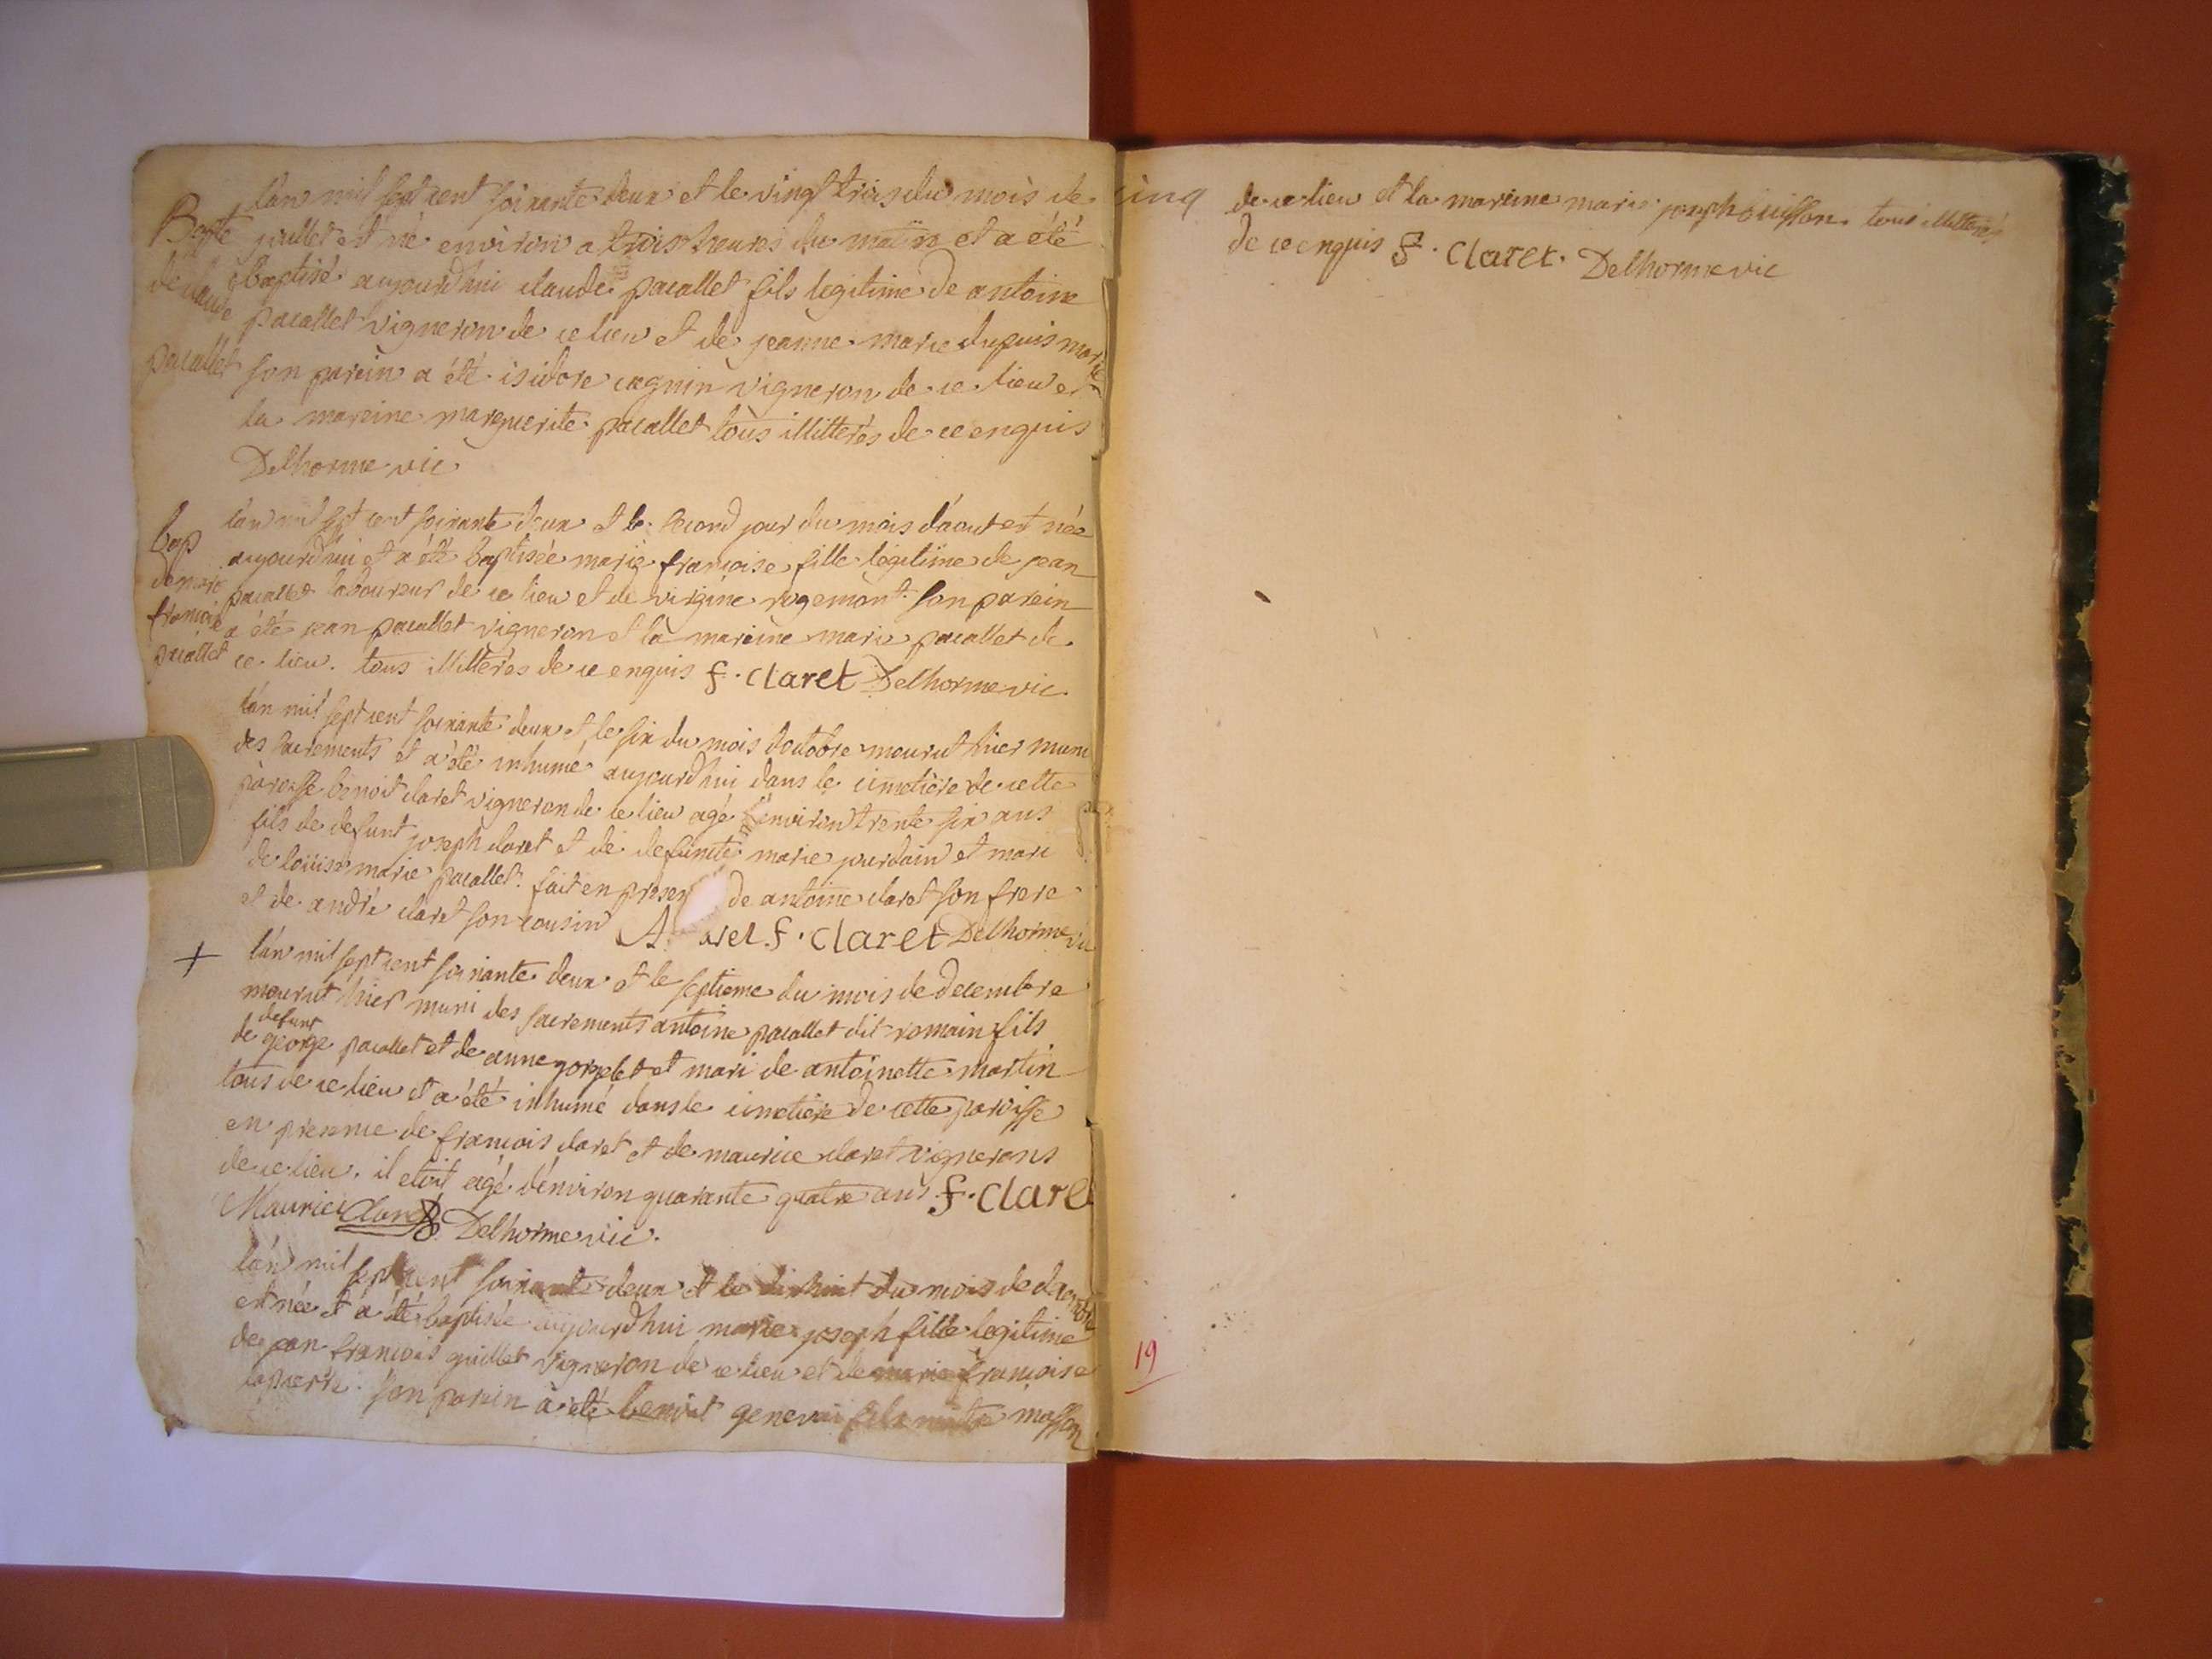 lan mil sept cent soixante deux et le vingt trois du mois de
Bapte juillet est né environ a trois heures du matin et a été
de claude baptisé aujourdhui claude pacallet fils legitime de antoine
pacallet vigneron de ce lieu et de jeanne marie dupuis mariés
pacallet son parein a été isidore cagnin vigneron de ce lieu et
la mareine marguerite pacallet tous illitterés de ce enquis
Delhorme vic
lan mil sept cent soixante deux et le second jour du mois daout est née
bap aujourdhui et a été baptisée marie françoise fille legitime de jean
de marie pacallet laboureur de ce lieu et de virgine rogemont. son parein
françoise a été jean pacallet vigneron et la mareine marie pacallet de
pacallet ce lieu. tous illitterés de ce enquis f. claret Delhorme vic
lan mil sept cent soixante deux et le six du mois doctobre mourut hier muni
des sacrements et a été inhumé aujourdhui dans le cimetière de cette
paroisse benoit claret vigneron de ce lieu agé denviron trente six ans
fils de defunt joseph claret et de defuncte marie jourdain et mari
de louise marie pacallet. fait en presen de antoine claret son frere
et de andré claret son cousin A aret f. claret Delhorme vic
+ lan mil sept cent soixante deux et le septieme du mois de decembre
mourut hier muni des sacrements antoine pacallet dit romain fils
defunt
de george pacallet et de anne gorplet et mari de antoinette martin
tous de ce lieu et a été inhumé dans le cimetière de cette paroisse
en presence de françois claret et de maurice claret vignerons
de ce lieu. il etoit agé denviron quarante quatre ans f. Claret
Maurice Claret Delhorme vic.
lan mil sept cent soixante deux et le dixhuit du mois de decembre
est née et a été baptisée aujourdhui marie joseph fille legitime
de jean françois guillet vigneron de ce lieu et de marie françoise
lapierre. son parein a été benoit genevoi fils maitre masson
cinq
de ce lieu et la mareine marie joseph buisson tous illitterés
de ce enquis f. Claret. Delhorme vic
19